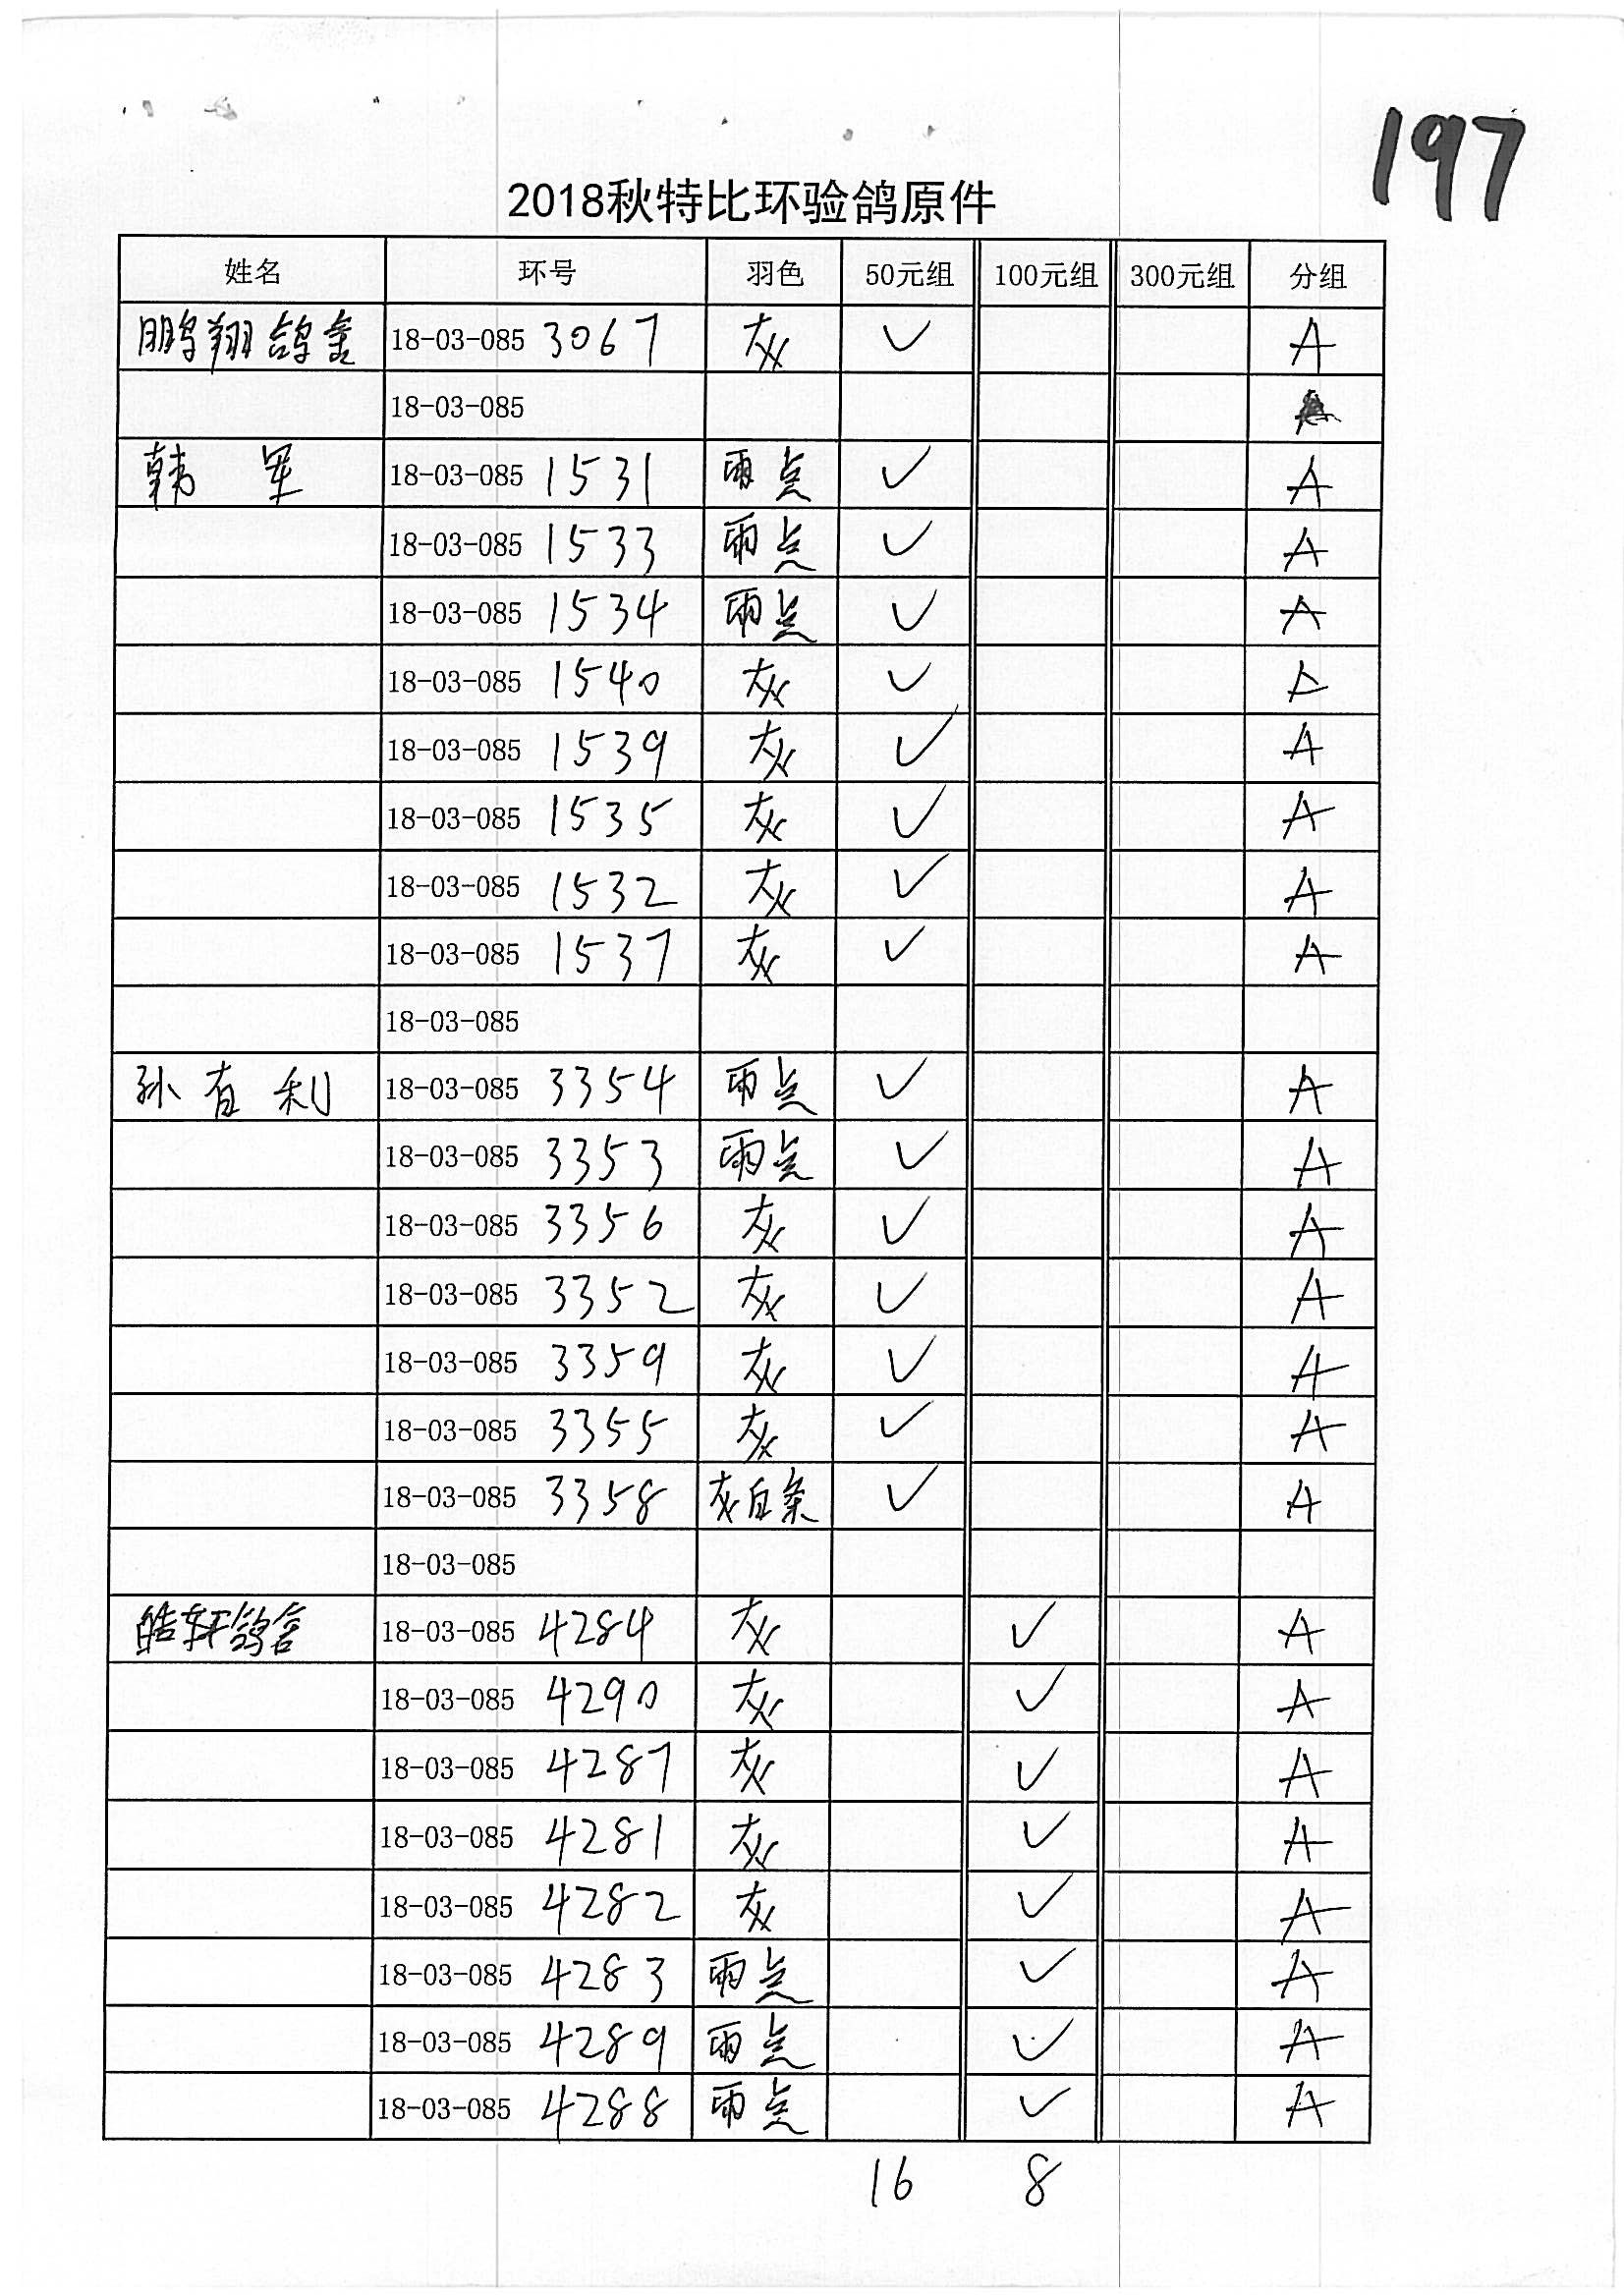 197
2018秋特比环验鸽原件
姓名 环号 羽色 50元组 100元组 300元组 分组
鹏翔鸽舍 18-03-085 3067 灰 ✓ A
18-03-085
韩军 18-03-085 1531 雨点 ✓ A
18-03-085 1533 雨点 ✓ A
18-03-085 1534 雨点 ✓ A
18-03-085 1540 灰 ✓ A
18-03-085 1539 灰 ✓ A
18-03-085 1535 灰 ✓ A
18-03-085 1532 灰 ✓ A
18-03-085 1537 灰 ✓ A
18-03-085
孙有利 18-03-085 3354 雨点 ✓ A
18-03-085 3353 雨点 ✓ A
18-03-085 3356 灰 ✓ A
18-03-085 3352 灰 ✓ A
18-03-085 3359 灰 ✓ A
18-03-085 3355 灰 ✓ A
18-03-085 3358 灰白条 ✓ A
18-03-085
皓轩鸽舍 18-03-085 4284 灰 ✓ A
18-03-085 4290 灰 ✓ A
18-03-085 4287 灰 ✓ A
18-03-085 4281 灰 ✓ A
18-03-085 4282 灰 ✓ A
18-03-085 4283 雨点 ✓ A
18-03-085 4289 雨点 ✓ A
18-03-085 4288 雨点 ✓ A
16 8